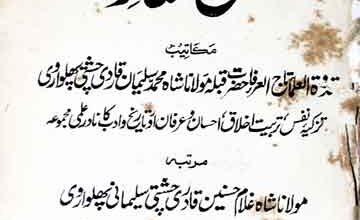 مکاتیب
قدوۃ العلما تاج العرفا حضرت قبلہ مولانا شاہ محمد سلیمان قادری چشتی پھلواروی
تزکیۂ نفس، تربیت اخلاق، احسان و عرفان اور تاریخ و ادب کا نادر علمی مجموعہ
مرتبہ
مولانا شاہ غلام حسنین قادری چشتی سلیمانی پھلواروی